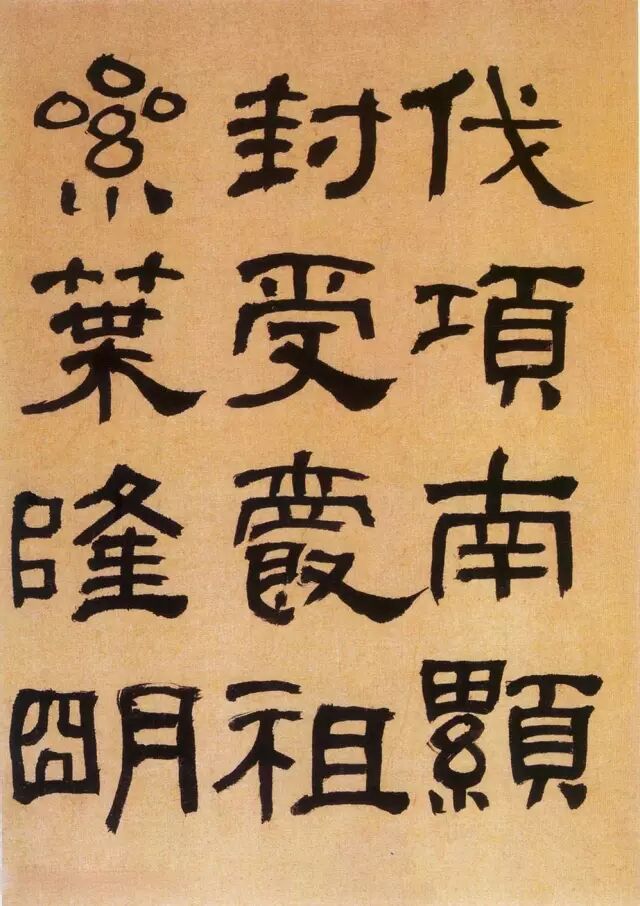 伐項南顯
封受爵祖
絫葉隆朙